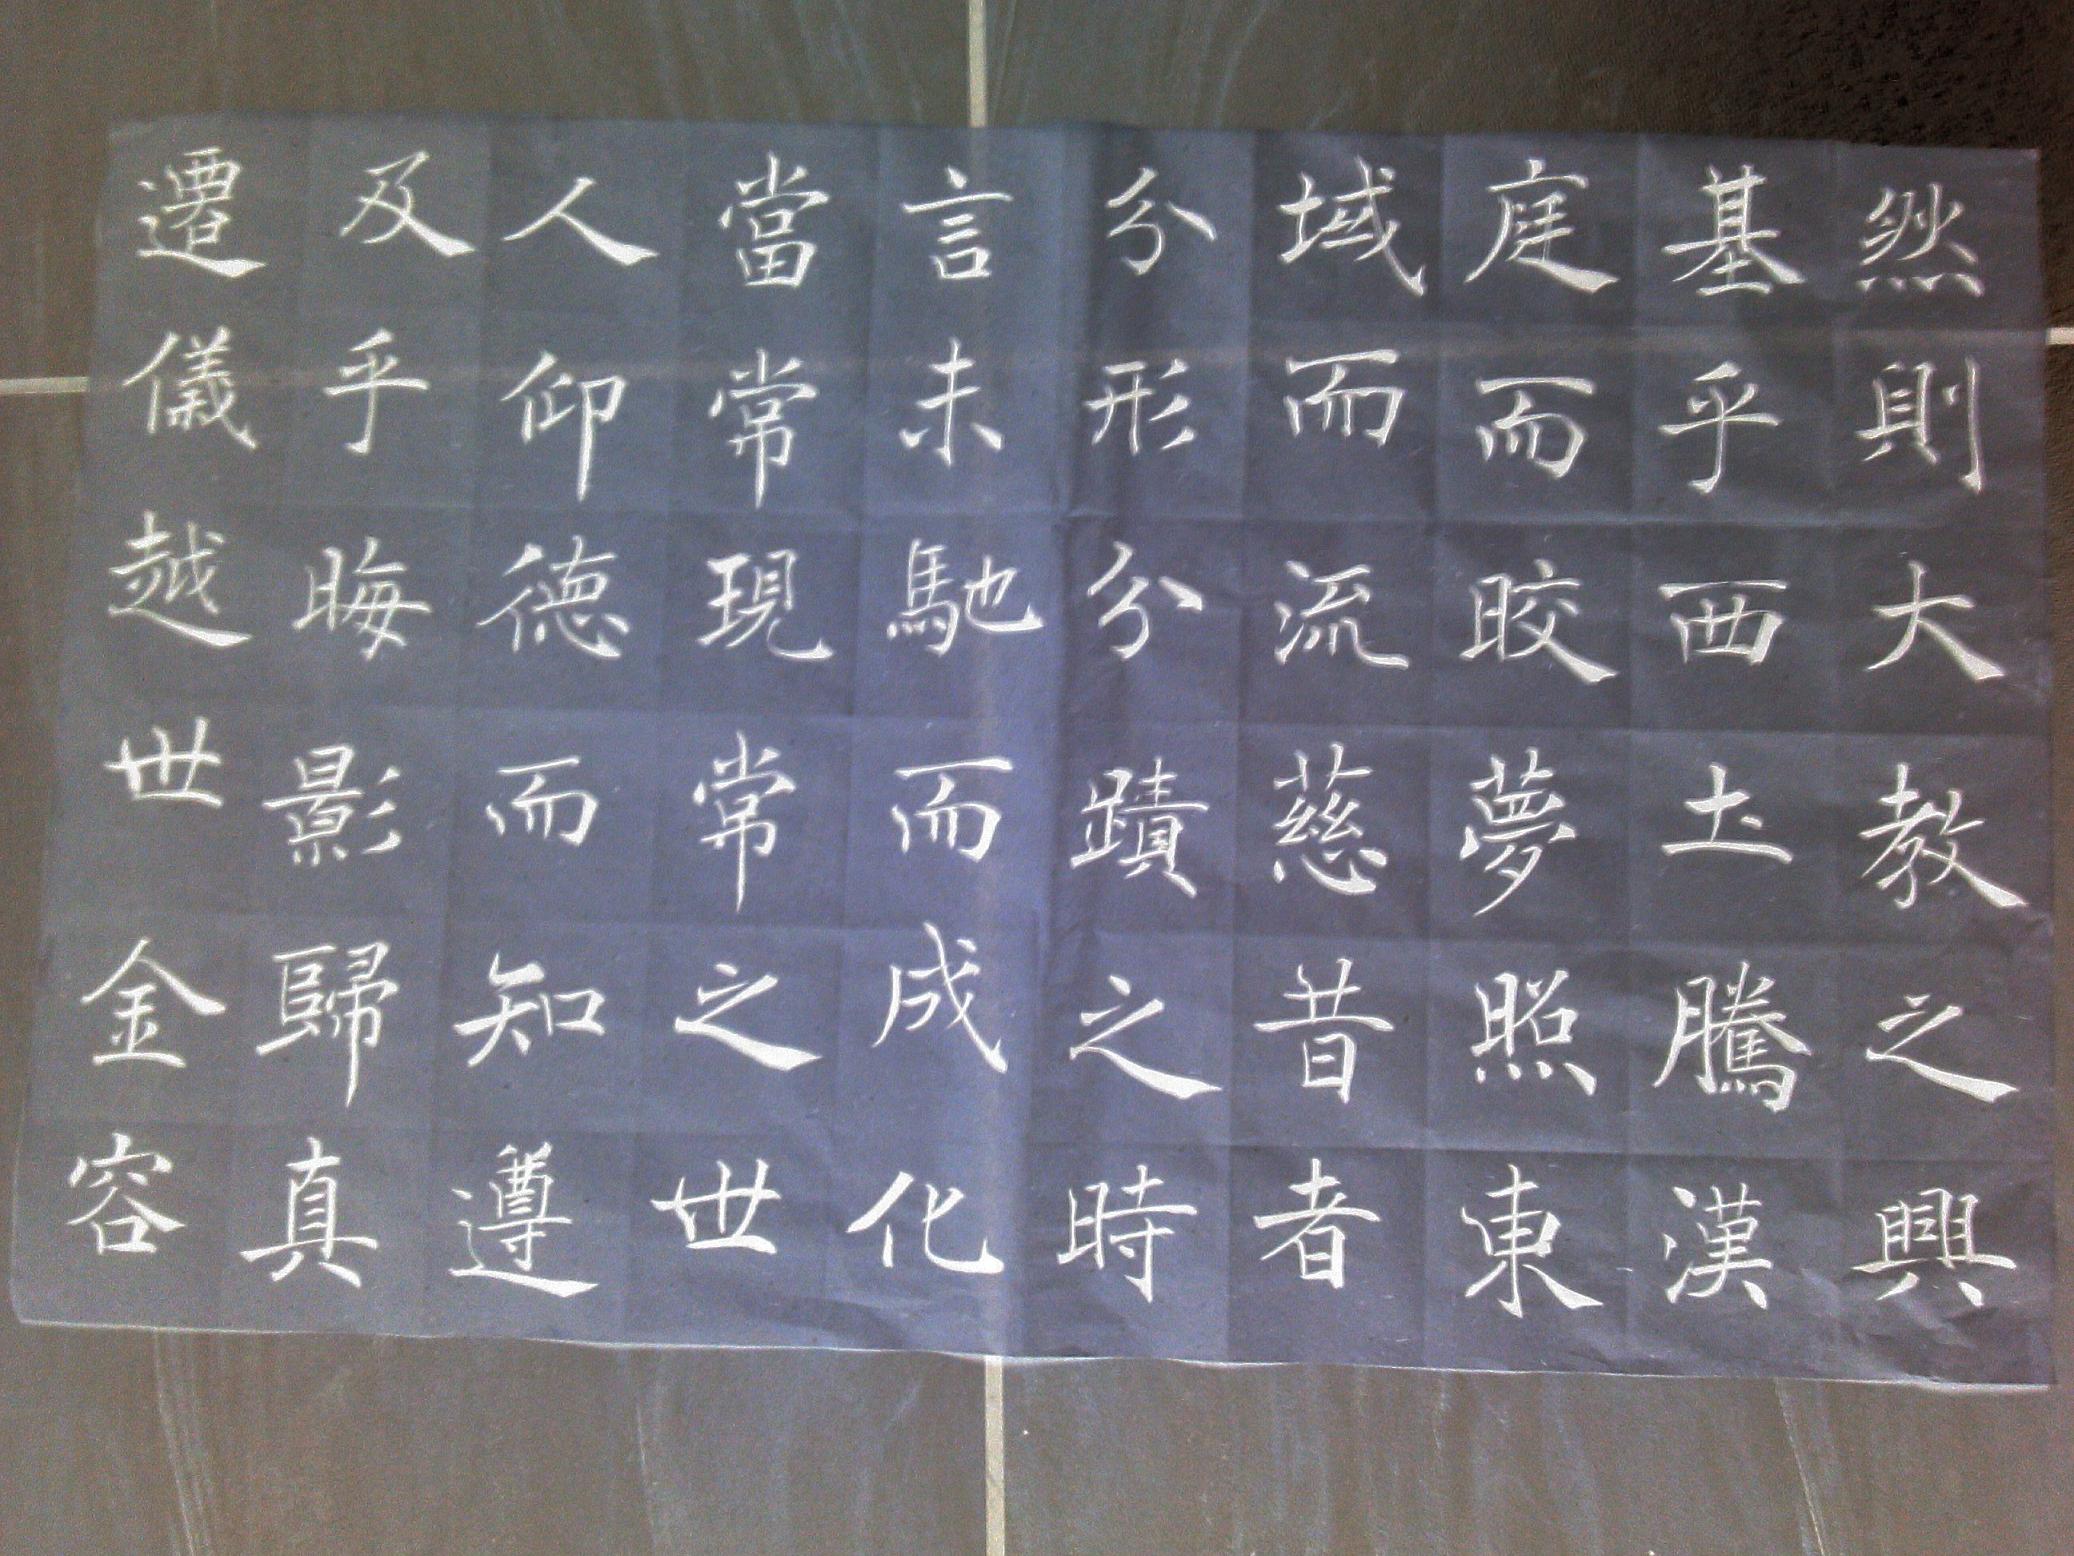 然則大教之興
基乎西土騰漢
庭而皎夢照東
域而流慈昔者
分形分蹟之時
言未馳而成化
當常現常之世
人仰德而知遵
及乎晦影歸真
遷儀越世金容